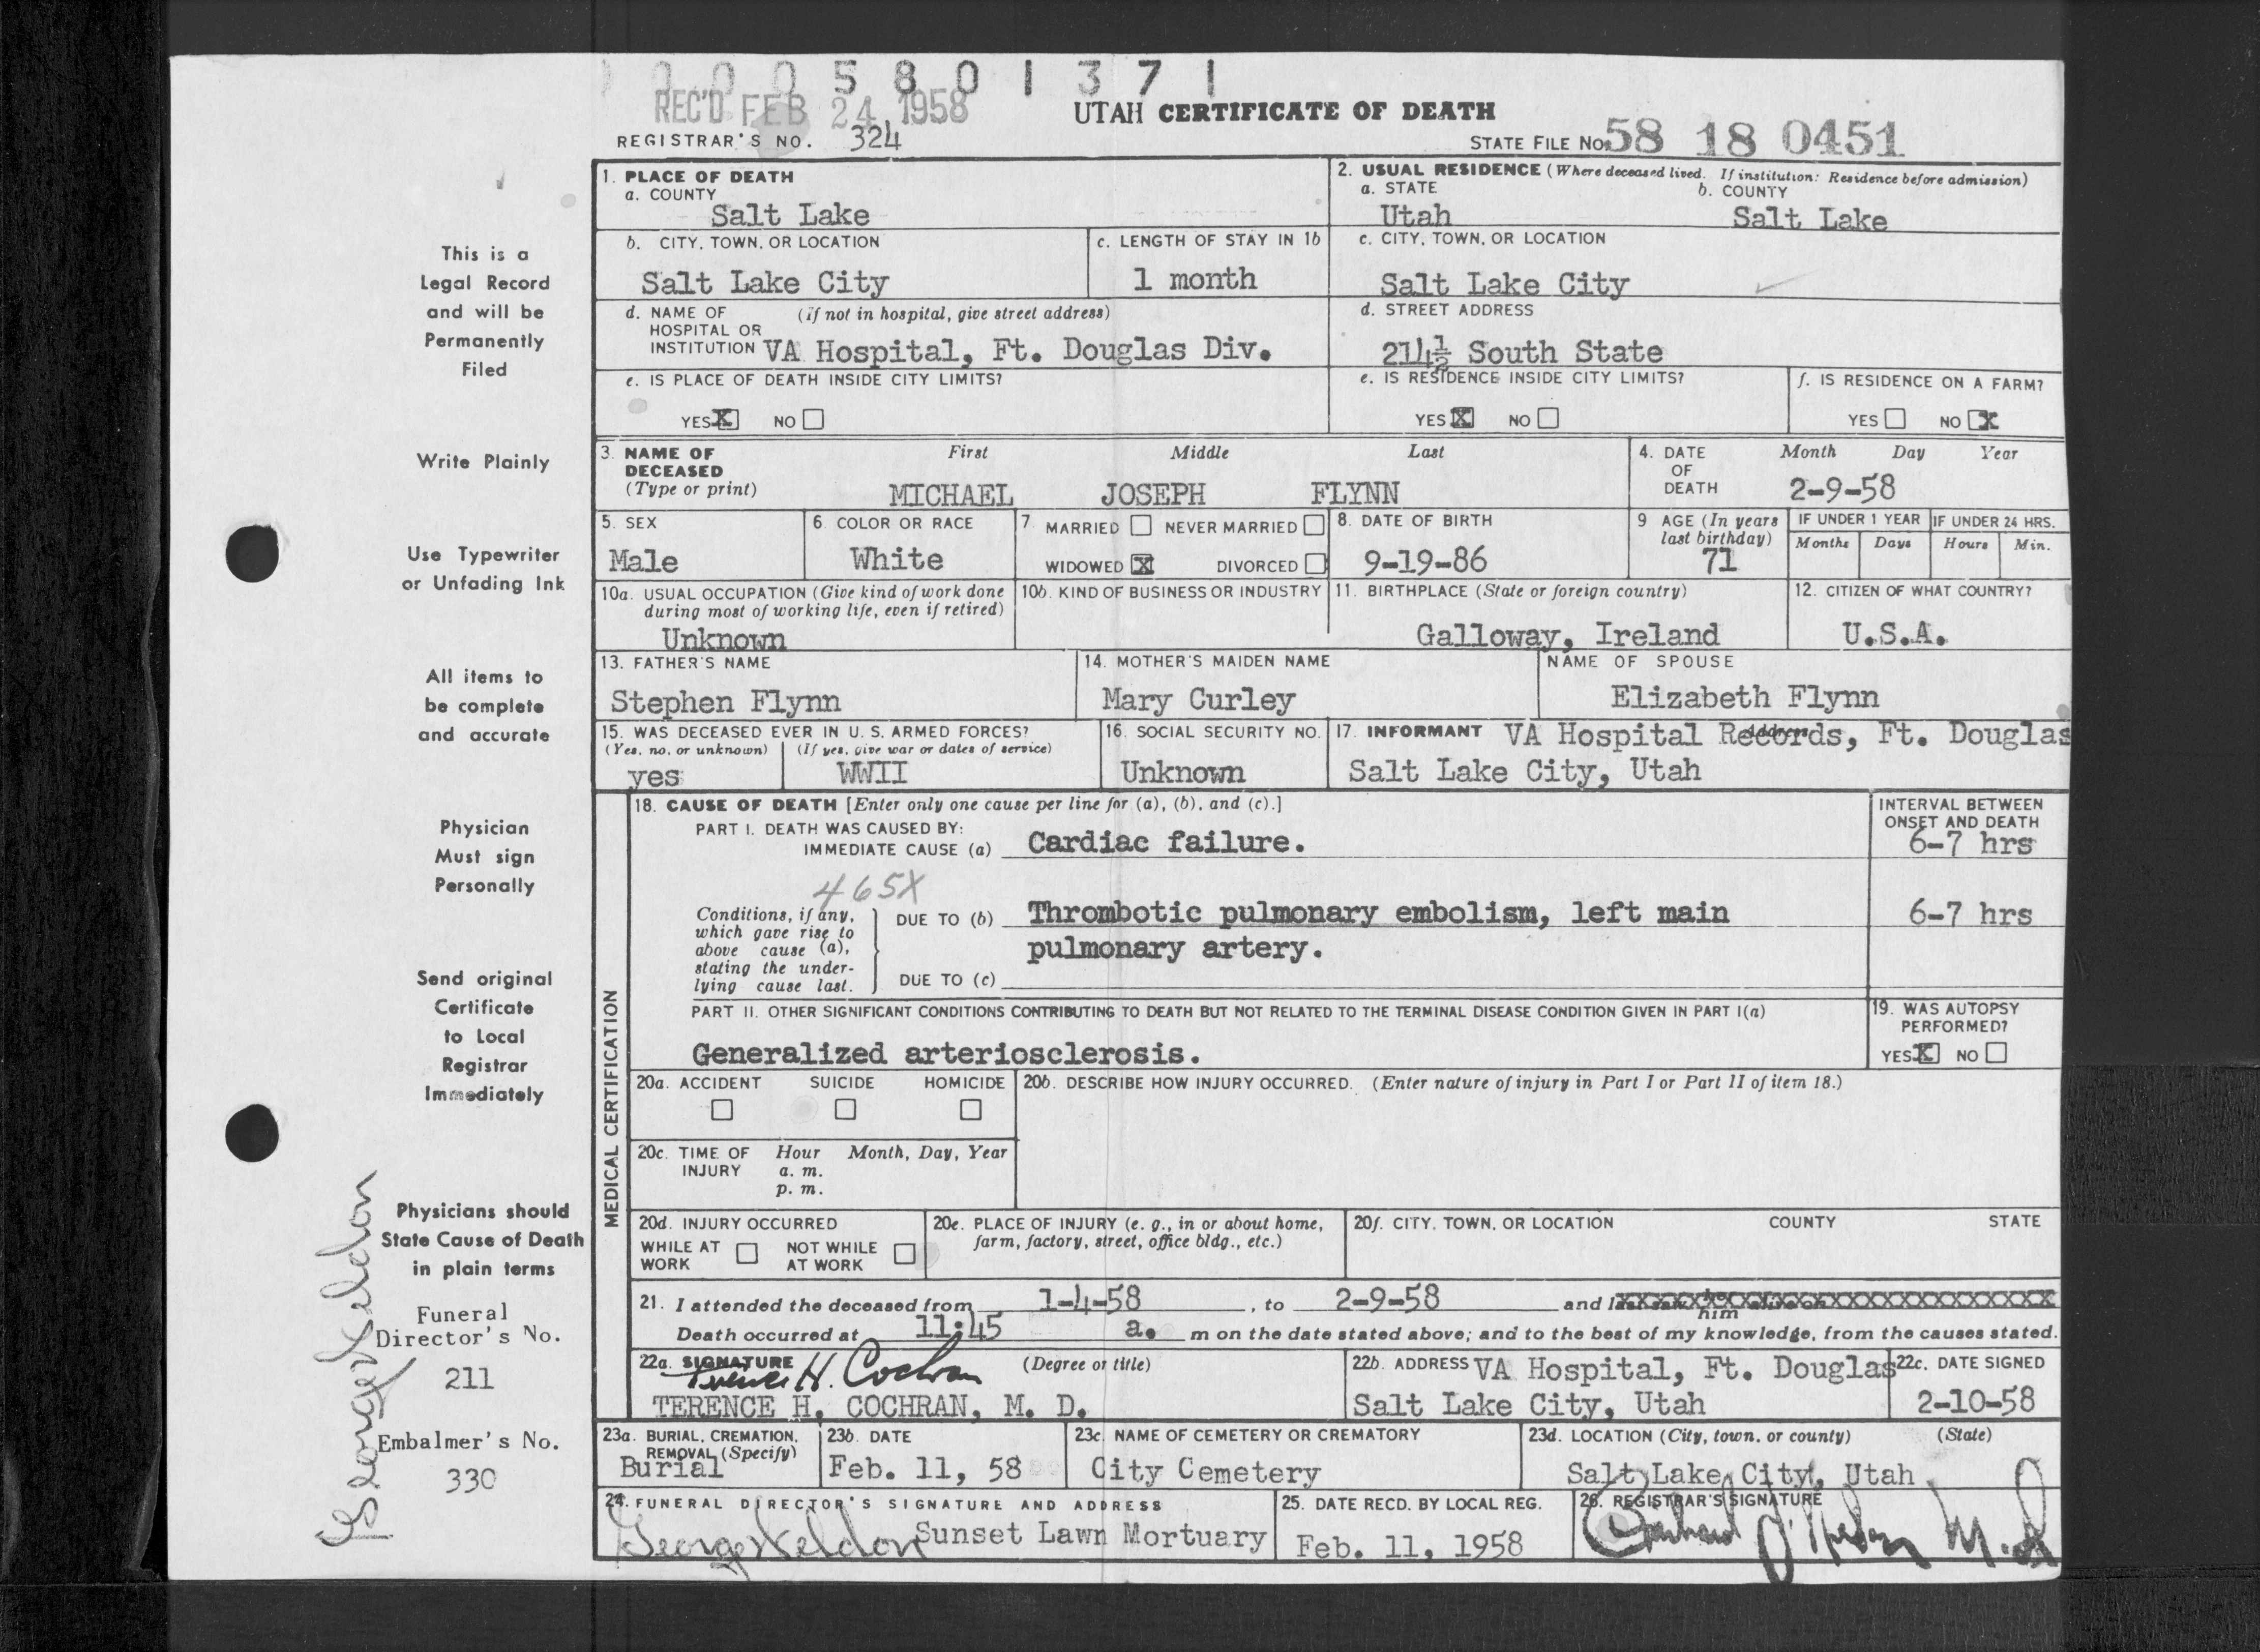 1 0 0 0 5 8 0 1 3 7 1
REC'D FEB 24 1958
UTAH CERTIFICATE OF DEATH
REGISTRAR'S NO. 324
STATE FILE No. 58 18 0451
1. PLACE OF DEATH
a. COUNTY
Salt Lake
2. USUAL RESIDENCE (Where deceased lived. If institution: Residence before admission)
a. STATE b. COUNTY
Utah Salt Lake
b. CITY, TOWN, OR LOCATION
Salt Lake City
c. LENGTH OF STAY IN 1b
1 month
c. CITY, TOWN, OR LOCATION
Salt Lake City
d. NAME OF (if not in hospital, give street address)
HOSPITAL OR
INSTITUTION VA Hospital, Ft. Douglas Div.
d. STREET ADDRESS
214½ South State
e. IS PLACE OF DEATH INSIDE CITY LIMITS?
YES X NO
e. IS RESIDENCE INSIDE CITY LIMITS?
YES X NO
f. IS RESIDENCE ON A FARM?
YES NO X
3. NAME OF DECEASED (Type or print)
First Middle Last
MICHAEL JOSEPH FLYNN
4. DATE OF DEATH Month Day Year
2-9-58
5. SEX
Male
6. COLOR OR RACE
White
7. MARRIED NEVER MARRIED
WIDOWED X DIVORCED
8. DATE OF BIRTH
9-19-86
9 AGE (In years last birthday)
71
IF UNDER 1 YEAR IF UNDER 24 HRS.
Months Days Hours Min.
10a. USUAL OCCUPATION (Give kind of work done
during most of working life, even if retired)
Unknown
10b. KIND OF BUSINESS OR INDUSTRY
11. BIRTHPLACE (State or foreign country)
Galloway, Ireland
12. CITIZEN OF WHAT COUNTRY?
U.S.A.
13. FATHER'S NAME
Stephen Flynn
14. MOTHER'S MAIDEN NAME
Mary Curley
NAME OF SPOUSE
Elizabeth Flynn
15. WAS DECEASED EVER IN U. S. ARMED FORCES?
(Yes, no, or unknown) (If yes, give war or dates of service)
yes WWII
16. SOCIAL SECURITY NO.
Unknown
17. INFORMANT Address
VA Hospital Records, Ft. Douglas
Salt Lake City, Utah
MEDICAL CERTIFICATION
18. CAUSE OF DEATH [Enter only one cause per line for (a), (b), and (c).]
INTERVAL BETWEEN
ONSET AND DEATH
PART I. DEATH WAS CAUSED BY:
IMMEDIATE CAUSE (a) Cardiac failure. 6-7 hrs
465X
Conditions, if any,
which gave rise to
above cause (a),
stating the under-
lying cause last.
DUE TO (b) Thrombotic pulmonary embolism, left main 6-7 hrs
pulmonary artery.
DUE TO (c)
PART II. OTHER SIGNIFICANT CONDITIONS CONTRIBUTING TO DEATH BUT NOT RELATED TO THE TERMINAL DISEASE CONDITION GIVEN IN PART I(a)
Generalized arteriosclerosis.
19. WAS AUTOPSY
PERFORMED?
YES X NO
20a. ACCIDENT SUICIDE HOMICIDE
20b. DESCRIBE HOW INJURY OCCURRED. (Enter nature of injury in Part I or Part II of item 18.)
20c. TIME OF INJURY Hour Month, Day, Year
a. m.
p. m.
20d. INJURY OCCURRED
WHILE AT WORK NOT WHILE AT WORK
20e. PLACE OF INJURY (e. g., in or about home,
farm, factory, street, office bldg., etc.)
20f. CITY, TOWN, OR LOCATION COUNTY STATE
21. I attended the deceased from 1-4-58, to 2-9-58 and last saw her him alive on
Death occurred at 11:45 a. m on the date stated above; and to the best of my knowledge, from the causes stated.
22a. SIGNATURE (Degree or title)
Terence H. Cochran
TERENCE H. COCHRAN, M. D.
22b. ADDRESS VA Hospital, Ft. Douglas
Salt Lake City, Utah
22c. DATE SIGNED
2-10-58
23a. BURIAL, CREMATION,
REMOVAL (Specify)
Burial
23b. DATE
Feb. 11, 58
23c. NAME OF CEMETERY OR CREMATORY
City Cemetery
23d. LOCATION (City, town, or county) (State)
Salt Lake City, Utah
24. FUNERAL DIRECTOR'S SIGNATURE AND ADDRESS
George Seldon Sunset Lawn Mortuary
25. DATE RECD. BY LOCAL REG.
Feb. 11, 1958
26. REGISTRAR'S SIGNATURE
M.D
This is a
Legal Record
and will be
Permanently
Filed
Write Plainly
Use Typewriter
or Unfading Ink
All items to
be complete
and accurate
Physician
Must sign
Personally
Send original
Certificate
to Local
Registrar
Immediately
Physicians should
State Cause of Death
in plain terms
Funeral
Director's No.
211
Embalmer's No.
330
George Seldon